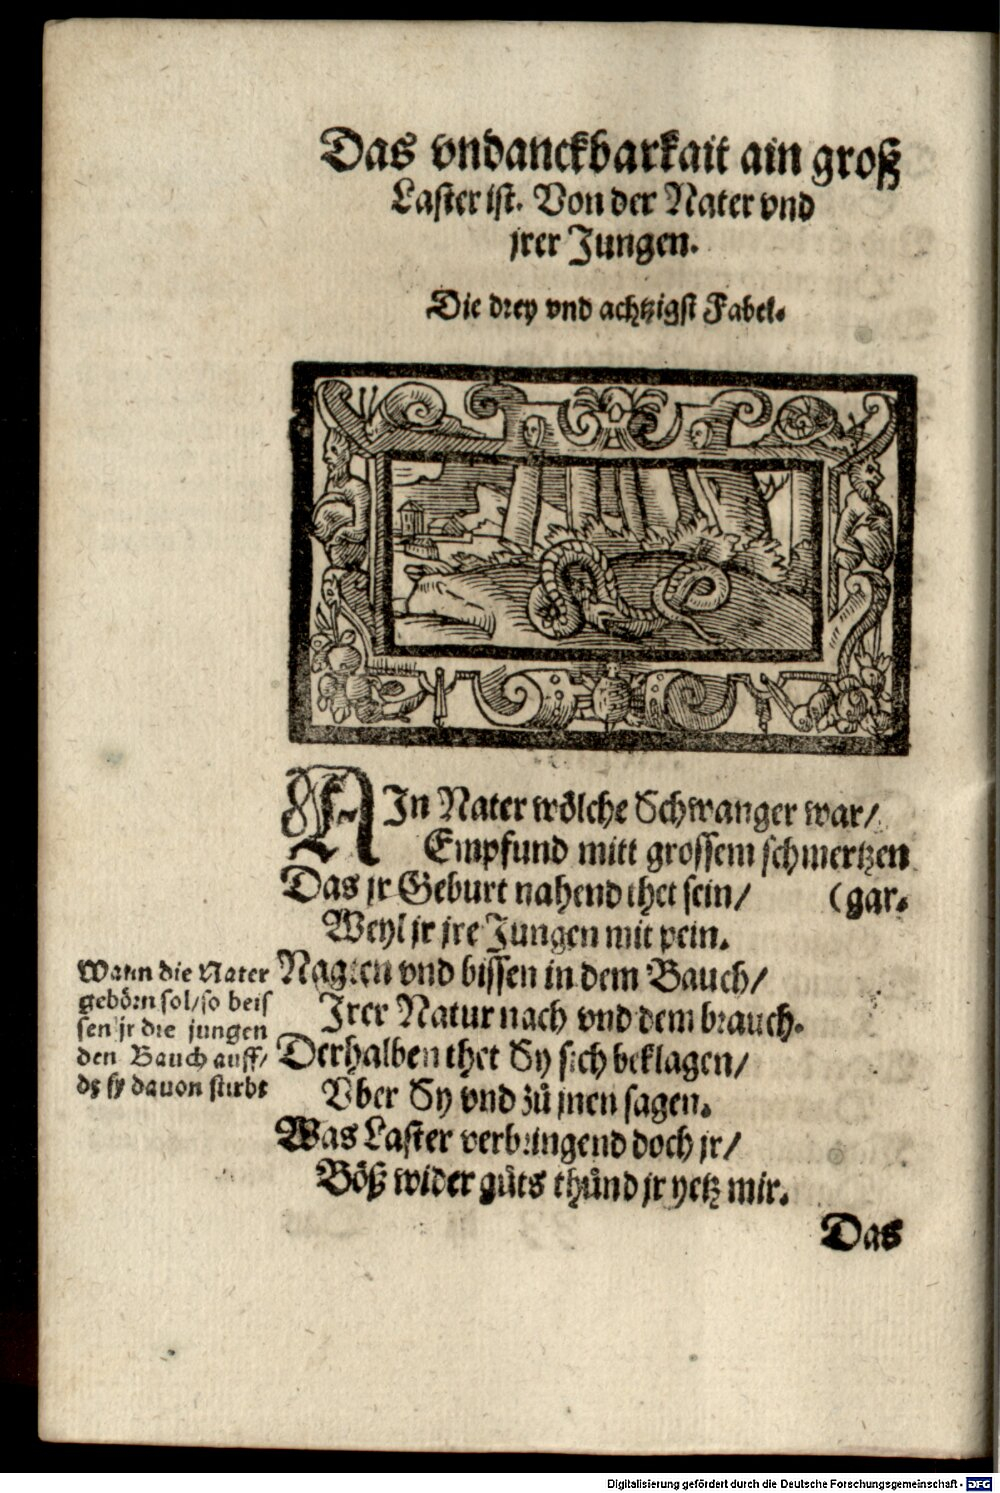 Das vndanckbarkait ain groß
Laster ist. Von der Nater vnd
jrer Jungen.
Die drey vnd achtzigst Fabel.
AIn Nater wölche Schwanger war/
Empfund mitt grossem schmertzen
Das jr Geburt nahend thet sein/ (gar.
Weyl jr jre Jungen mit pein.
Nagten vnd bissen in dem Bauch/
Irer Natur nach vnd dem brauch.
Derhalben thet Sy sich beklagen/
Vber Sy vnd zů jnen sagen.
Was Laster verbringend doch jr/
Böß wider gůts thůnd jr yetz mir.
Wann die Nater
gebörn sol/so beis
sen jr die jungen
den Bauch auff/
dz sy dauon stirbt
Das
Digitalisierung gefördert durch die Deutsche Forschungsgemeinschaft - DFG